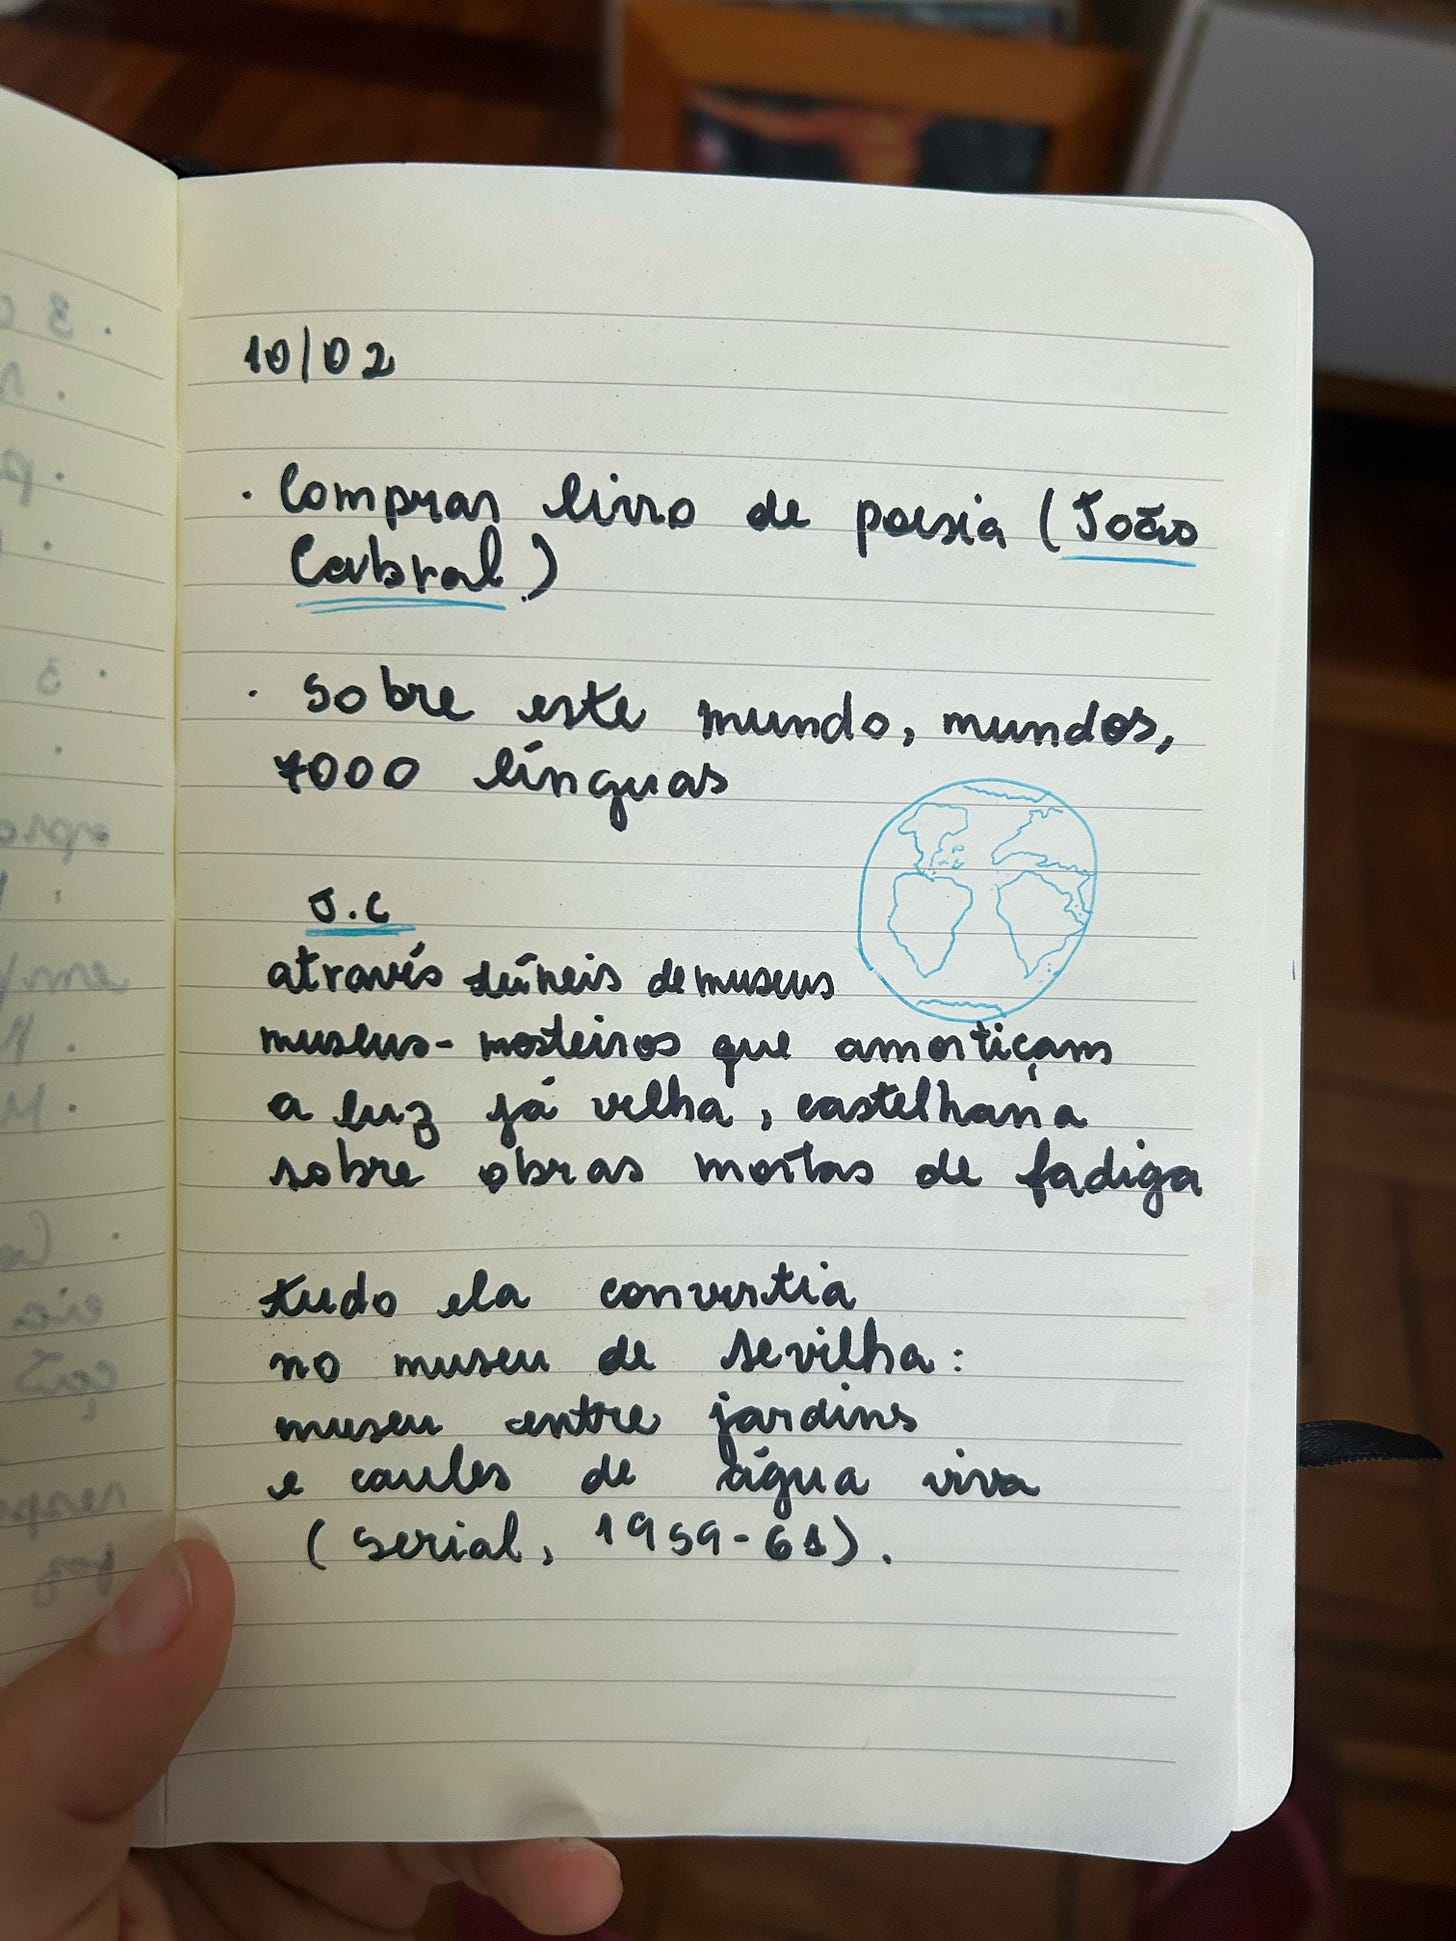 10/02
· Comprar livro de poesia (João
Cabral)
· Sobre este mundo, mundos,
7000 línguas
J.C
através túneis de museus
museus-mosteiros que amortiçam
a luz já velha, castelhana
sobre obras mortas de fadiga
tudo ela convertia
no museu de Sevilha:
museu entre jardins
e caules de água viva
(serial, 1959-61).